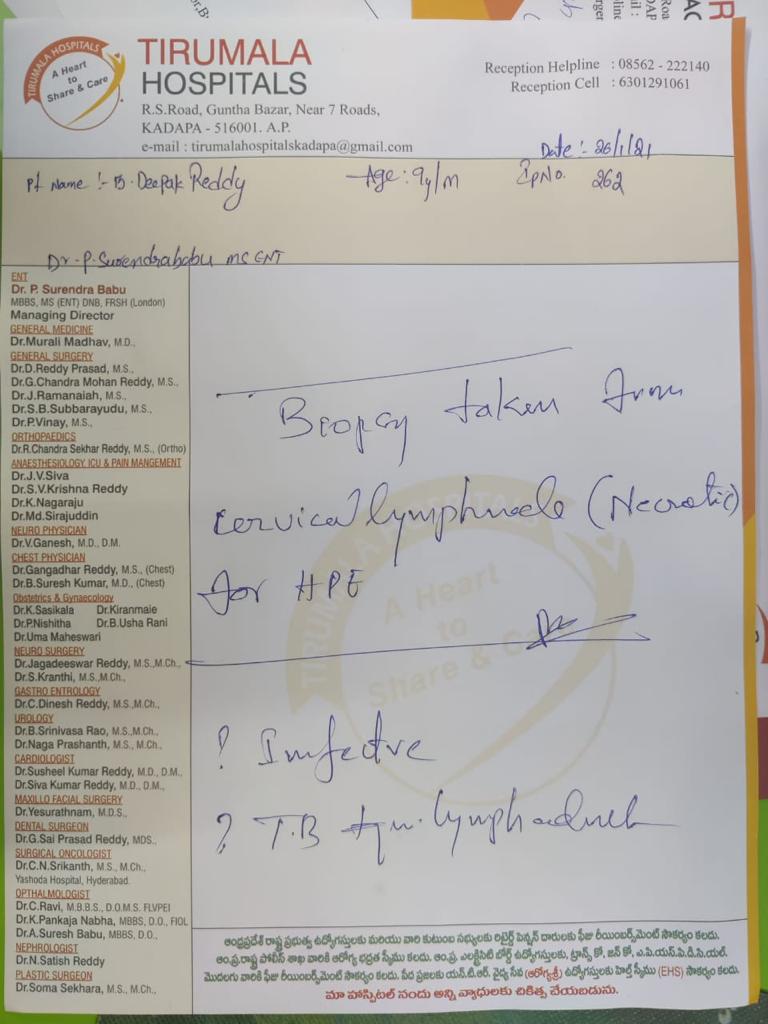 TIRUMALA HOSPITALS
A Heart
to
Share & Care
TIRUMALA
HOSPITALS
R.S.Road, Guntha Bazar, Near 7 Roads,
KADAPA - 516001. A.P.
e-mail : tirumalahospitalskadapa@gmail.com
Reception Helpline : 08562 - 222140
Reception Cell : 6301291061
Date :- 26/1/21
Pt Name :- B. Deepak Reddy Age : 9y/M IpNo. 262
Dr. P. Surendrababu MS ENT
ENT
Dr. P. Surendra Babu
MBBS, MS (ENT) DNB, FRSH (London)
Managing Director
GENERAL MEDICINE
Dr.Murali Madhav, M.D.,
GENERAL SURGERY
Dr.D.Reddy Prasad, M.S.,
Dr.G.Chandra Mohan Reddy, M.S.,
Dr.J.Ramanaiah, M.S.,
Dr.S.B.Subbarayudu, M.S.,
Dr.P.Vinay, M.S.,
ORTHOPAEDICS
Dr.R.Chandra Sekhar Reddy, M.S., (Ortho)
ANAESTHESIOLOGY, ICU & PAIN MANGEMENT
Dr.J.V.Siva
Dr.S.V.Krishna Reddy
Dr.K.Nagaraju
Dr.Md.Sirajuddin
NEURO PHYSICIAN
Dr.V.Ganesh, M.D., D.M.
CHEST PHYSICIAN
Dr.Gangadhar Reddy, M.S., (Chest)
Dr.B.Suresh Kumar, M.D., (Chest)
Obstetrics & Gynaecology
Dr.K.Sasikala Dr.Kiranmaie
Dr.P.Nishitha Dr.B.Usha Rani
Dr.Uma Maheswari
NEURO SURGERY
Dr.Jagadeeswar Reddy, M.S.,M.Ch.,
Dr.S.Kranthi, M.S.,M.Ch.,
GASTRO ENTROLOGY
Dr.C.Dinesh Reddy, M.S.,M.Ch.,
UROLOGY
Dr.B.Srinivasa Rao, M.S.,M.Ch.,
Dr.Naga Prashanth, M.S., M.Ch.,
CARDIOLOGIST
Dr.Susheel Kumar Reddy, M.D., D.M.,
Dr.Siva Kumar Reddy, M.D., D.M.,
MAXILLO FACIAL SURGERY
Dr.Yesurathnam, M.D.S.,
DENTAL SURGEON
Dr.G.Sai Prasad Reddy, MDS.,
SURGICAL ONCOLOGIST
Dr.C.N.Srikanth, M.S., M.Ch.,
Yashoda Hospital, Hyderabad.
OPTHALMOLOGIST
Dr.C.Ravi, M.B.B.S., D.O.M.S. FLVPEI
Dr.K.Pankaja Nabha, MBBS, D.O., FIOL
Dr.A.Suresh Babu, MBBS, D.O.,
NEPHROLOGIST
Dr.N.Satish Reddy
PLASTIC SURGEON
Dr.Soma Sekhara, M.S., M.Ch.,
Biopsy taken from
cervical lymphnode (Necrotic)
for HPE
? Infective
? T.B
ఆంధ్రప్రదేశ్ రాష్ట్ర ప్రభుత్వ ఉద్యోగస్తులకు మరియు వారి కుటుంబ సభ్యులకు రిటైర్డ్ పెన్షన్ దారులకు ఫీజు రీయింబర్స్‌మెంట్ సౌకర్యం కలదు.
ఆం.ప్ర.రాష్ట్ర పోలీస్ శాఖ వారికి ఆరోగ్య భద్రత స్కీము కలదు. ఆం.ప్ర. ఎలక్ట్రిసిటి బోర్డ్ ఉద్యోగస్తులకు, ట్రాన్స్ కో, జెన్ కో, ఎ.పి.యస్.పి.డి.సి.యల్.
మొదలగు వారికి ఫీజు రీయింబర్స్‌మెంట్ సౌకర్యం కలదు. పేద ప్రజలకు యన్.టి.ఆర్. వైద్య సేవ (ఆరోగ్యశ్రీ) ఉద్యోగస్తులకు హెల్త్ స్కీము (EHS) సౌకర్యం కలదు.
మా హాస్పిటల్ నందు అన్ని వ్యాధులకు చికిత్స చేయబడును.